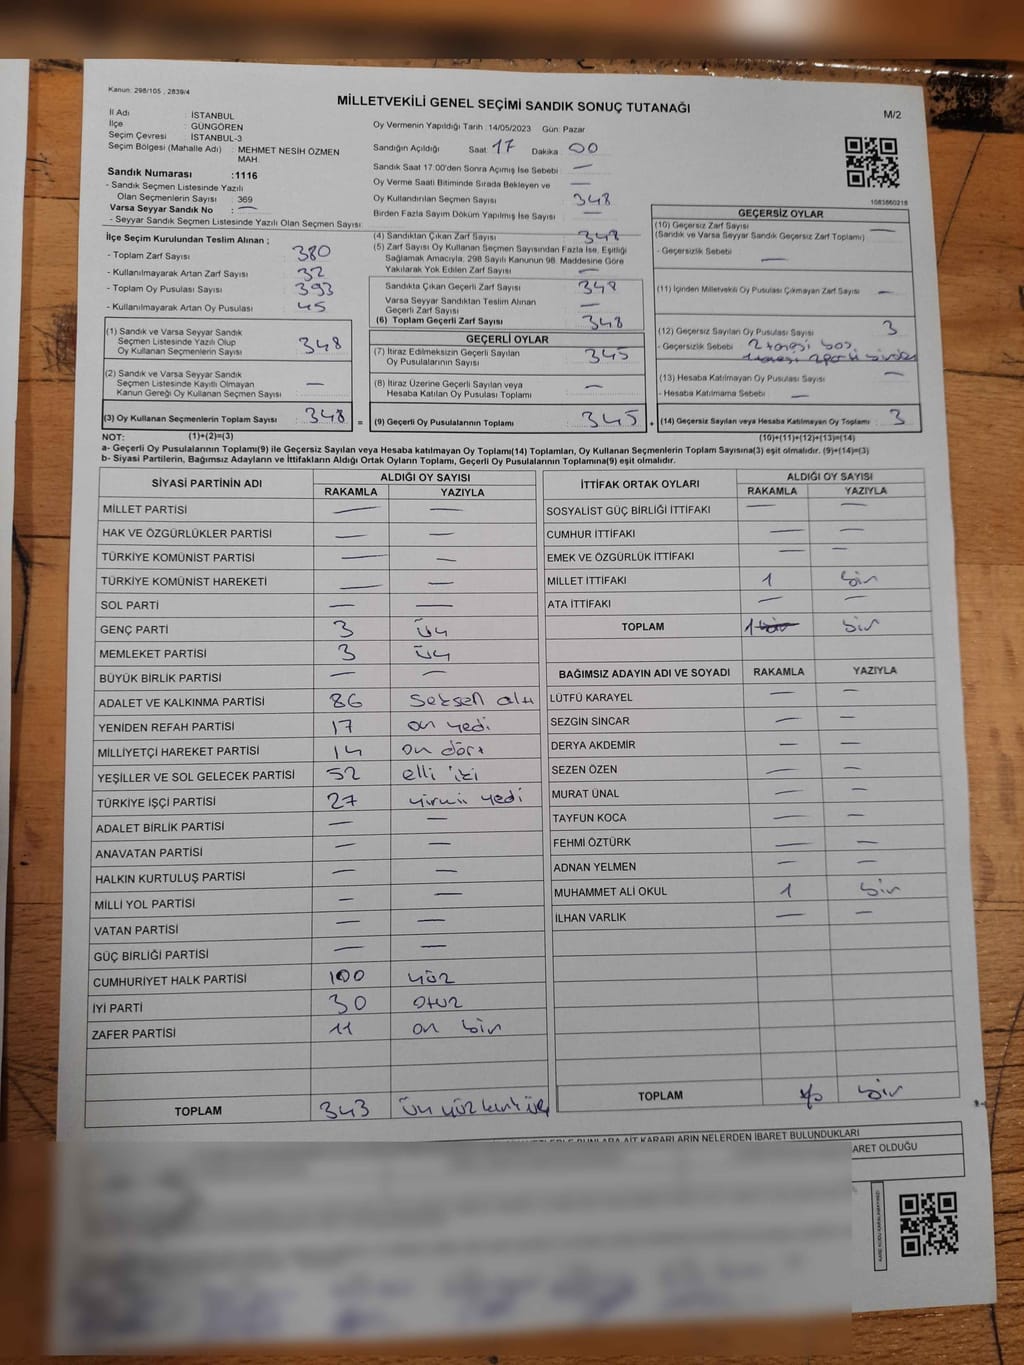 Kanun: 298/105 , 2839/4
MİLLETVEKİLİ GENEL SEÇİMİ SANDIK SONUÇ TUTANAĞI
M/2
İl Adı : İSTANBUL
İlçe : GÜNGÖREN
Seçim Çevresi : İSTANBUL-3
Seçim Bölgesi (Mahalle Adı) : MEHMET NESİH ÖZMEN MAH.
Sandık Numarası :1116
- Sandık Seçmen Listesinde Yazılı
Olan Seçmenlerin Sayısı : 369
Varsa Seyyar Sandık No : —
- Seyyar Sandık Seçmen Listesinde Yazılı Olan Seçmen Sayısı
Oy Vermenin Yapıldığı Tarih :14/05/2023 Gün: Pazar
Sandığın Açıldığı Saat 17 Dakika 00
Sandık Saat 17:00'den Sonra Açımış İse Sebebi —
Oy Verme Saati Bitiminde Sırada Bekleyen ve —
Oy Kullandırılan Seçmen Sayısı 348
Birden Fazla Sayım Döküm Yapılmış İse Sayısı —
1083860218
İlçe Seçim Kurulundan Teslim Alınan ;
- Toplam Zarf Sayısı : 380
- Kullanılmayarak Artan Zarf Sayısı : 32
- Toplam Oy Pusulası Sayısı : 393
- Kullanılmayarak Artan Oy Pusulası : 45
(1) Sandık ve Varsa Seyyar Sandık
Seçmen Listesinde Yazılı Olup
Oy Kullanan Seçmenlerin Sayısı : 348
(2) Sandık ve Varsa Seyyar Sandık
Seçmen Listesinde Kayıtlı Olmayan
Kanun Gereği Oy Kullanan Seçmen Sayısı —
(3) Oy Kullanan Seçmenlerin Toplam Sayısı : 348
(4) Sandıktan Çıkan Zarf Sayısı 348
(5) Zarf Sayısı Oy Kullanan Seçmen Sayısından Fazla İse, Eşitliği
Sağlamak Amacıyla, 298 Sayılı Kanunun 98. Maddesine Göre
Yakılarak Yok Edilen Zarf Sayısı —
Sandıkta Çıkan Geçerli Zarf Sayısı 348
Varsa Seyyar Sandıktan Teslim Alınan
Geçerli Zarf Sayısı —
(6) Toplam Geçerli Zarf Sayısı 348
GEÇERLİ OYLAR
(7) İtiraz Edilmeksizin Geçerli Sayılan
Oy Pusulalarının Sayısı 345
(8) İtiraz Üzerine Geçerli Sayılan veya
Hesaba Katılan Oy Pusulası Toplamı —
= (9) Geçerli Oy Pusulalarının Toplamı 345 +
GEÇERSİZ OYLAR
(10) Geçersiz Zarf Sayısı —
(Sandık ve Varsa Seyyar Sandık Geçersiz Zarf Toplamı)
- Geçersizlik Sebebi —
(11) İçinden Milletvekili Oy Pusulası Çıkmayan Zarf Sayısı —
(12) Geçersiz Sayılan Oy Pusulası Sayısı 3
- Geçersizlik Sebebi 2 tanesi boş
1 tanesi 2 parti
(13) Hesaba Katılmayan Oy Pusulası Sayısı —
- Hesaba Katılmama Sebebi —
(14) Geçersiz Sayılan veya Hesaba Katılmayan Oy Toplamı 3
NOT: (1)+(2)=(3) (10)+(11)+(12)+(13)=(14)
a- Geçerli Oy Pusulalarının Toplamı(9) ile Geçersiz Sayılan veya Hesaba katılmayan Oy Toplamı(14) Toplamları, Oy Kullanan Seçmenlerin Toplam Sayısına(3) eşit olmalıdır. (9)+(14)=(3)
b- Siyasi Partilerin, Bağımsız Adayların ve İttifakların Aldığı Ortak Oyların Toplamı, Geçerli Oy Pusulalarının Toplamına(9) eşit olmalıdır.
SİYASİ PARTİNİN ADI ALDIĞI OY SAYISI
RAKAMLA YAZIYLA
MİLLET PARTİSİ — —
HAK VE ÖZGÜRLÜKLER PARTİSİ — —
TÜRKİYE KOMÜNİST PARTİSİ — —
TÜRKİYE KOMÜNİST HAREKETİ — —
SOL PARTİ — —
GENÇ PARTİ 3 üç
MEMLEKET PARTİSİ 3 üç
BÜYÜK BİRLİK PARTİSİ — —
ADALET VE KALKINMA PARTİSİ 86 Seksen altı
YENİDEN REFAH PARTİSİ 17 on yedi
MİLLİYETÇİ HAREKET PARTİSİ 14 on dört
YEŞİLLER VE SOL GELECEK PARTİSİ 52 elli iki
TÜRKİYE İŞÇİ PARTİSİ 27 yirmi yedi
ADALET BİRLİK PARTİSİ — —
ANAVATAN PARTİSİ — —
HALKIN KURTULUŞ PARTİSİ — —
MİLLİ YOL PARTİSİ — —
VATAN PARTİSİ — —
GÜÇ BİRLİĞİ PARTİSİ — —
CUMHURİYET HALK PARTİSİ 100 yüz
İYİ PARTİ 30 otuz
ZAFER PARTİSİ 11 on bir
TOPLAM 343 üç yüz kırk üç
İTTİFAK ORTAK OYLARI ALDIĞI OY SAYISI
RAKAMLA YAZIYLA
SOSYALİST GÜÇ BİRLİĞİ İTTİFAKI — —
CUMHUR İTTİFAKI — —
EMEK VE ÖZGÜRLÜK İTTİFAKI — —
MİLLET İTTİFAKI 1 bir
ATA İTTİFAKI — —
TOPLAM 1 bir bir
BAĞIMSIZ ADAYIN ADI VE SOYADI RAKAMLA YAZIYLA
LÜTFÜ KARAYEL — —
SEZGİN SİNCAR — —
DERYA AKDEMİR — —
SEZEN ÖZEN — —
MURAT ÜNAL — —
TAYFUN KOCA — —
FEHMİ ÖZTÜRK — —
ADNAN YELMEN — —
MUHAMMET ALİ OKUL 1 bir
İLHAN VARLIK — —
TOPLAM bir
BUNLARA AİT KARARLARIN NELERDEN İBARET BULUNDUKLARI
ARET OLDUĞU